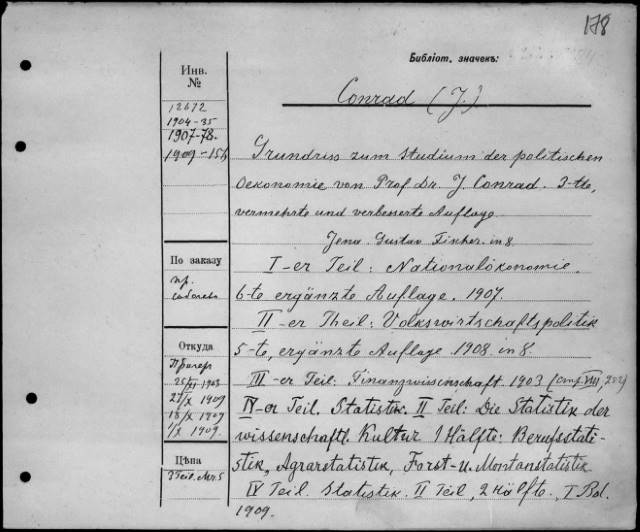 178
Библіот. значекъ:
Conrad (J.)
Инв. №
12672
1904-35
1907-78.
1909-156
Grundriss zum Studium der politischen
Oekonomie von Prof. Dr. J. Conrad. 3-te,
vermehrte und verbesserte Auflage.
Jena. Gustav Fischer. in 8.
I-er Teil: Nationalökonomie.
6-te ergänzte Auflage. 1907.
II-er Theil: Volkswirtschaftspolitik
5-te, ergänzte Auflage 1908. in 8.
III-er Teil: Finanzwissenschaft. 1903
IV-er Teil. Statistik. II Teil: Die Statistik der
wissenschaftl. Kultur 1 Hälfte: Berufsstati-
stik, Agrarstatistik, Forst- u. Montanstatistik
IV Teil. Statistik. II Teil, 2 Hälfte, I Bd.
1909.
По заказу
пр.
Откуда
25/XI 1903
27/X 1909
18/X 1907
1/X 1909.
Цѣна
3 Teil. Mr. 5